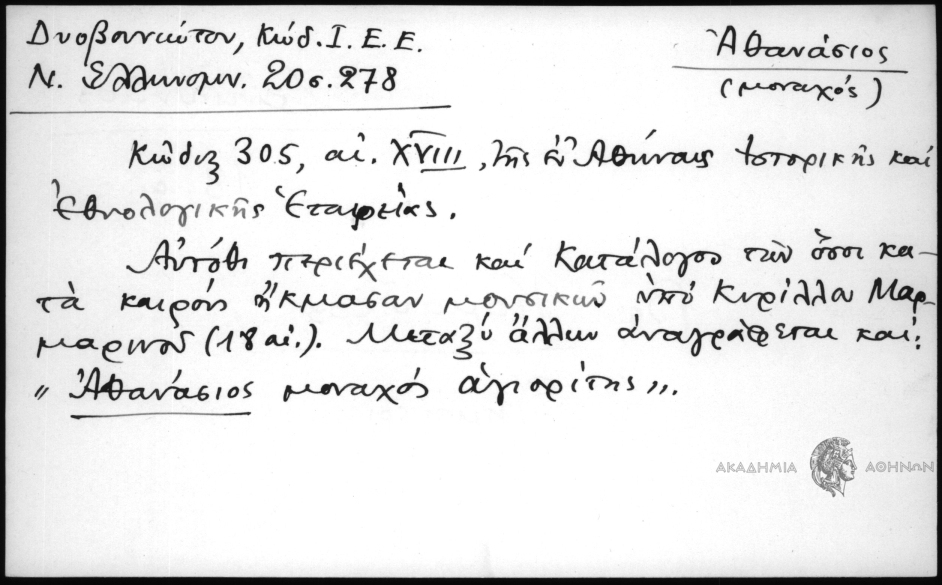 Δυοβουνιώτου, Κώδ. Ι. Ε. Ε.
Ν. Ἑλληνομν. 20 σ. 278
Ἀθανάσιος
(μοναχός)
Κῶδιξ 305, αἰ. XVIII, τῆς ἐν Ἀθήναις Ἱστορικῆς καί
Ἐθνολογικῆς Ἑταιρείας.
Αὐτόθι περιέχεται καί Κατάλογος τῶν ὅσοι κα-
τὰ καιρούς ἤκμασαν μουσικῶν ὑπό Κυρίλλου Μαρ-
μαρινοῦ (18 αἰ.). Μεταξύ ἄλλων ἀναγράφεται καί:
"Ἀθανάσιος μοναχός ἁγιορίτης".
ΑΚΑΔΗΜΙΑ ΑΘΗΝΩΝ